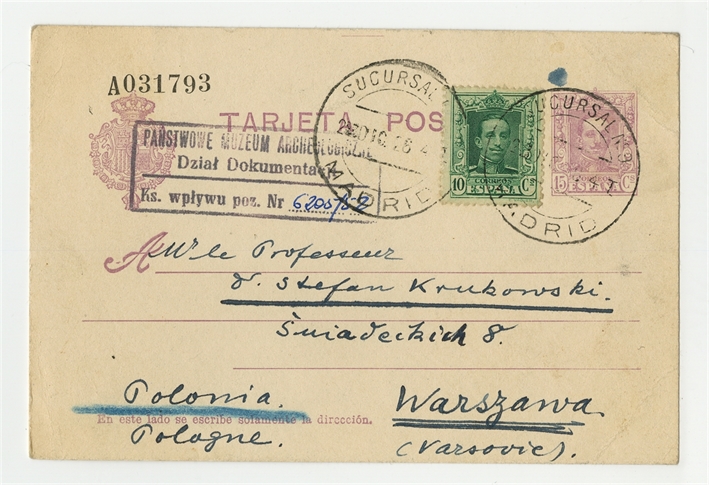 A031793
TARJETA POS
SUCURSAL
MADRID
SUCURSAL Nº 9
MADRID
10 CORREOS Cs
ESPAÑA
15 Cs
PAŃSTWOWE MUZEUM ARCHEOLOGICZNE
Dział Dokumentacji
Ks. wpływu poz. Nr 6200/52
A Mr le Professeur
d. Stefan Krukowski.
Śniadeckich 8.
Polonia. Warszawa
En este lado se escribe solamente la dirección.
Pologne. (Varsovie).